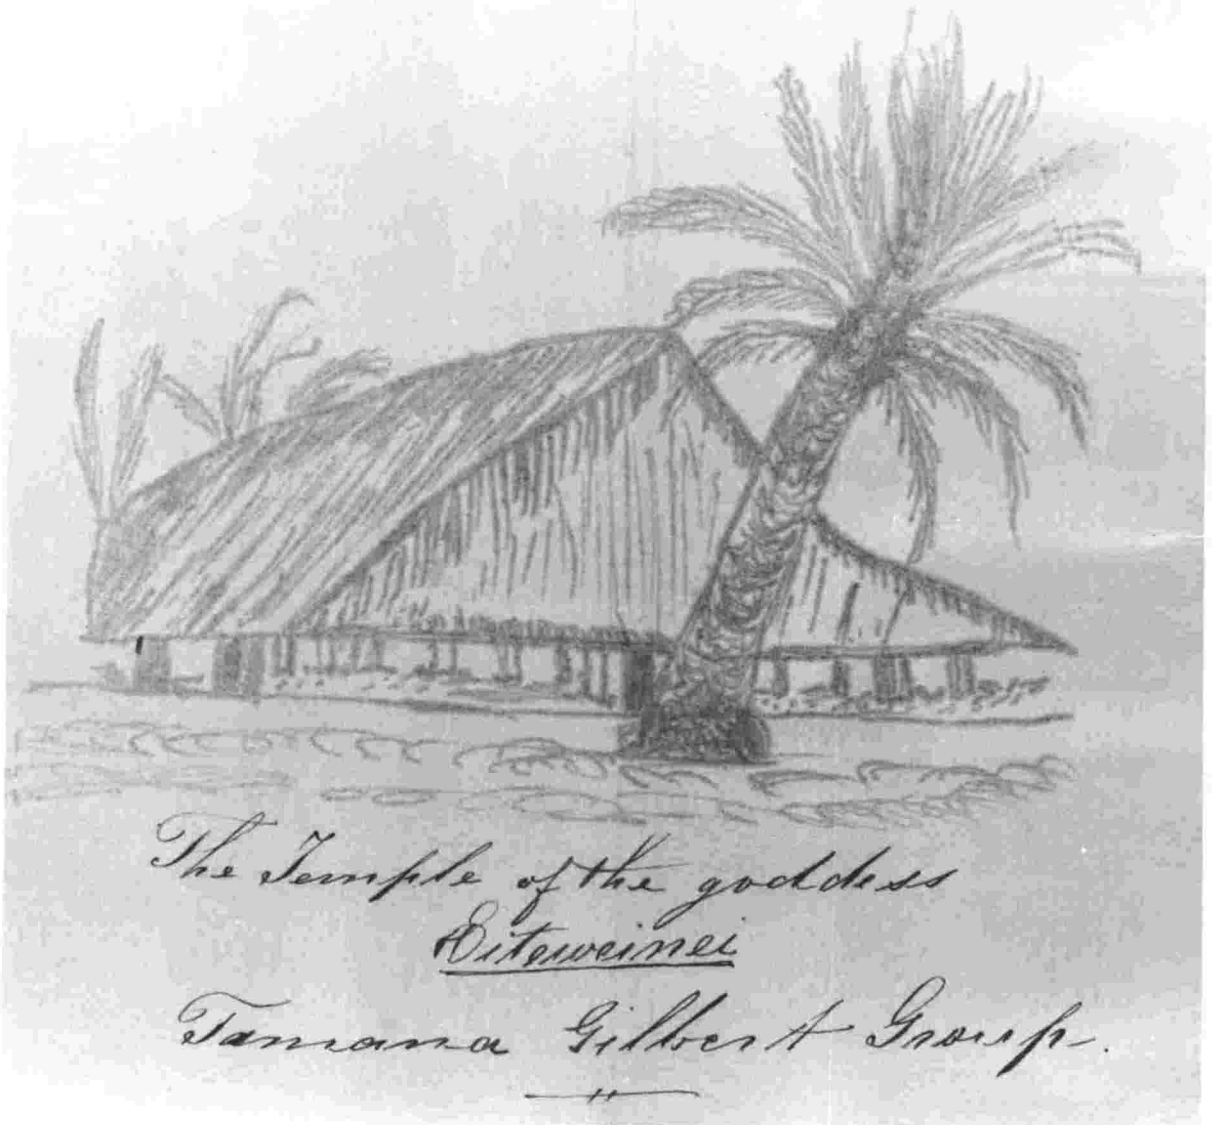 The Temple of the goddess
Eiteweinei
Tamana Gilbert Group.